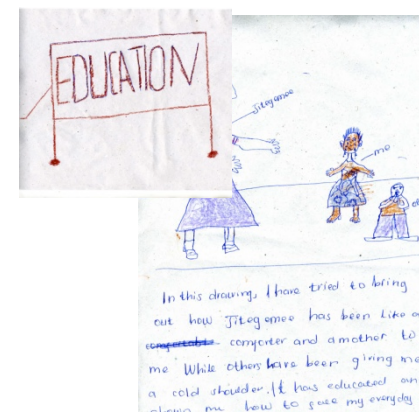 EDUCATION
Jitegemee
me
In this drawing, I have tried to bring
out how Jitegemee has been like a
comforter and a mother to
me While others have been giving me
a cold shoulder. It has educated an
shown me how to my everyday